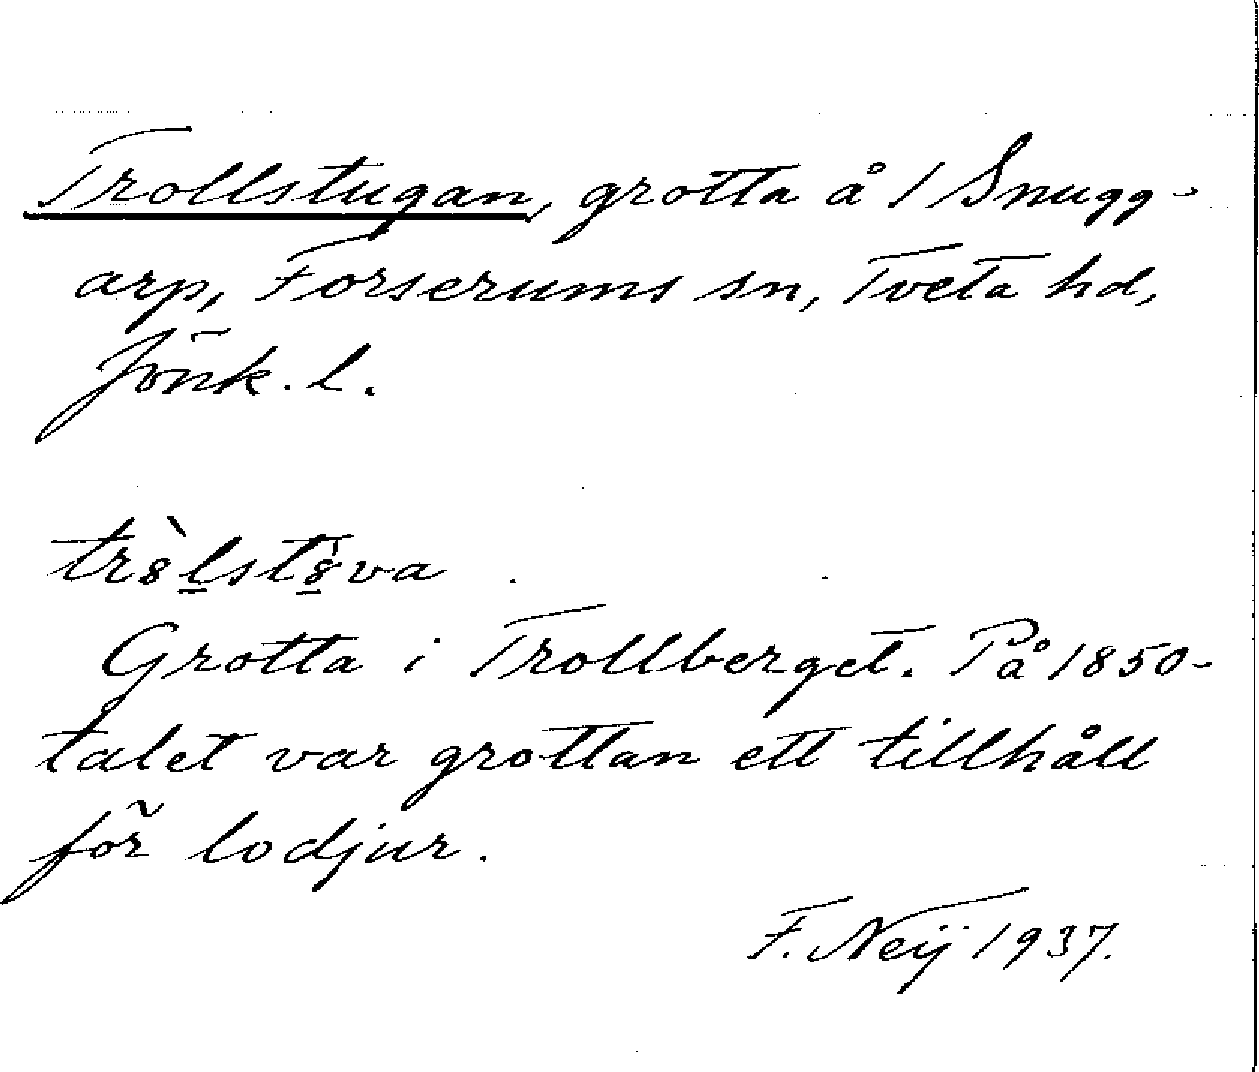 Trollstugan, grotta å 1 Snugg-
arp, Forserums sn, Tveta hd,
Jönk. l.
tr8̀l̠st8̠̀va
Grotta i Trollberget. På 1850-
talet var grottan ett tillhåll
för lodjur.
F. Neij 1937.